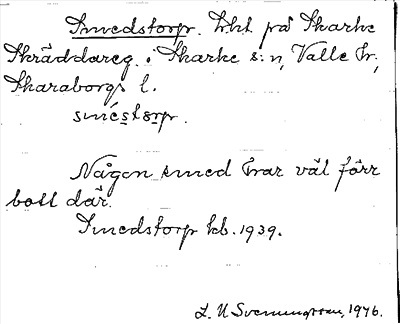 Smedstorp. Lht på Skarke
Skräddareg. i Skarke s:n, Valle hr,
Skaraborgs l.
smȩ́stơrp.
Någon smed har väl förr
bott där.
Smedstorp kb. 1939.
L. N Svenungsson, 1976.